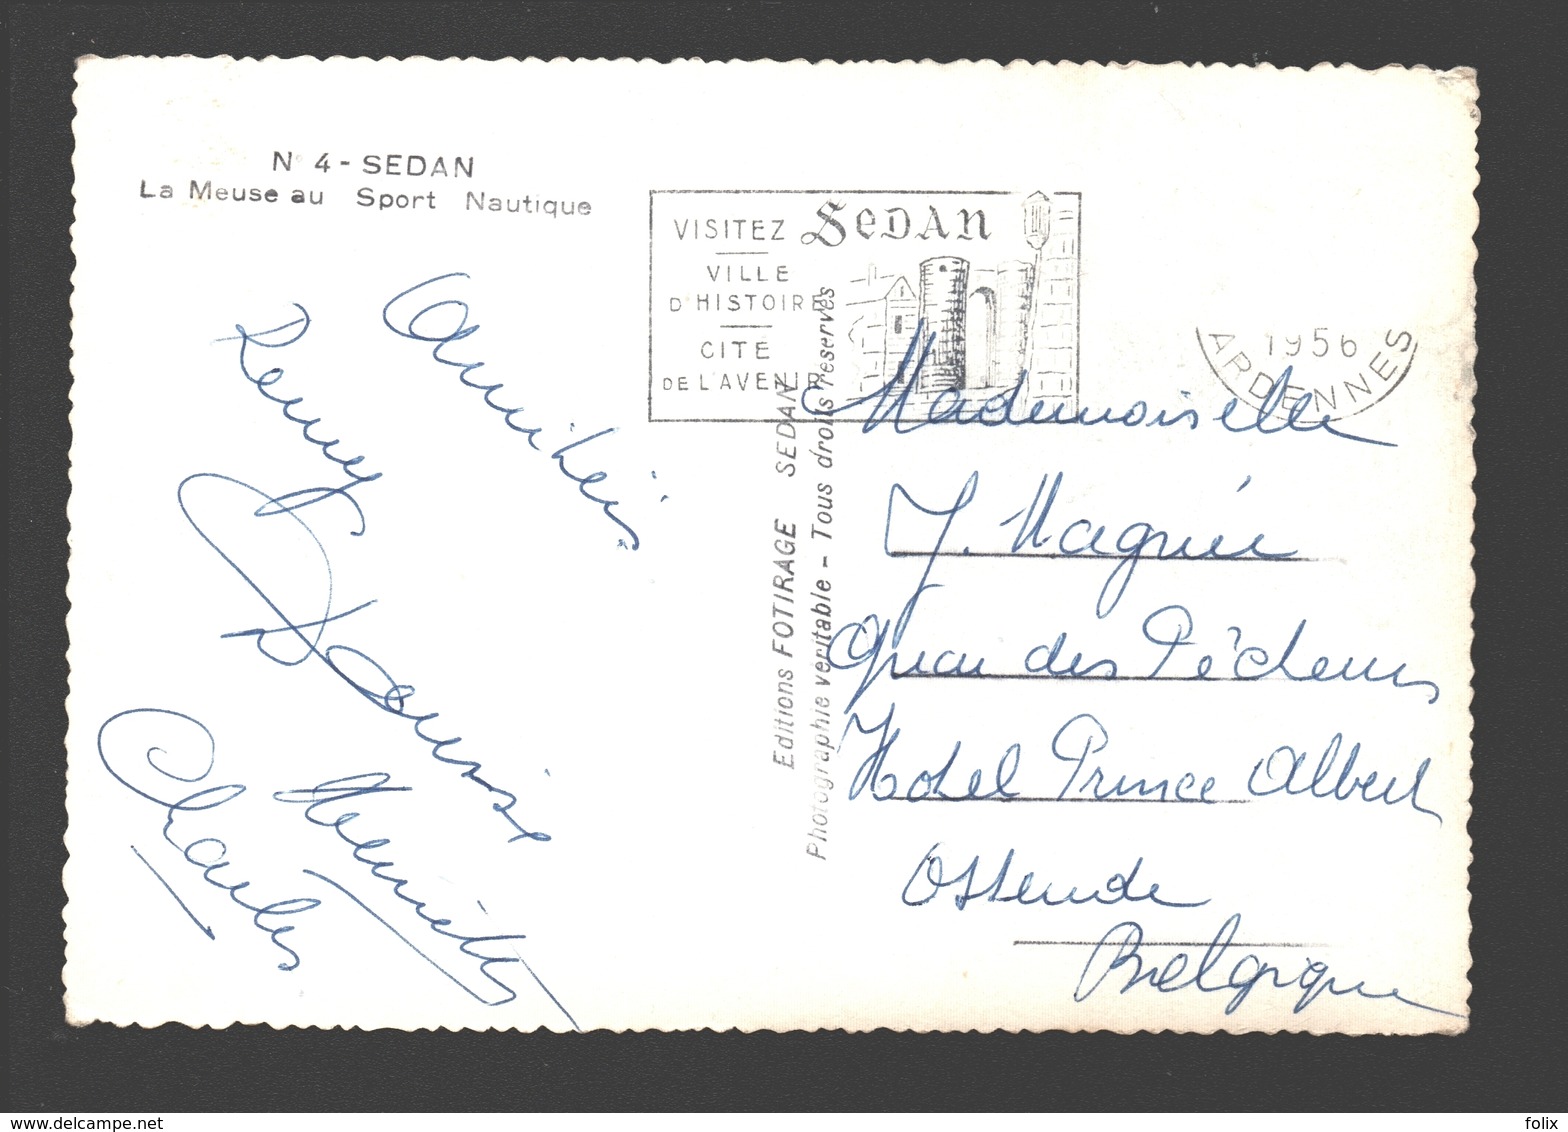 N° 4 - SEDAN
La Meuse au Sport Nautique
VISITEZ SEDAN
VILLE
D'HISTOIRE
CITE
DE L'AVENIR
1956
ARDENNES
Amitiés
Remy
Denise
Henriette
Charles
Editions FOTIRAGE SEDAN
Photographie veritable - Tous droits reserves
Mademoiselle
J. Magnée
Quai des Pêcheurs
Hotel Prince Albert
Ostende
Belgique
delcampe.net
folix